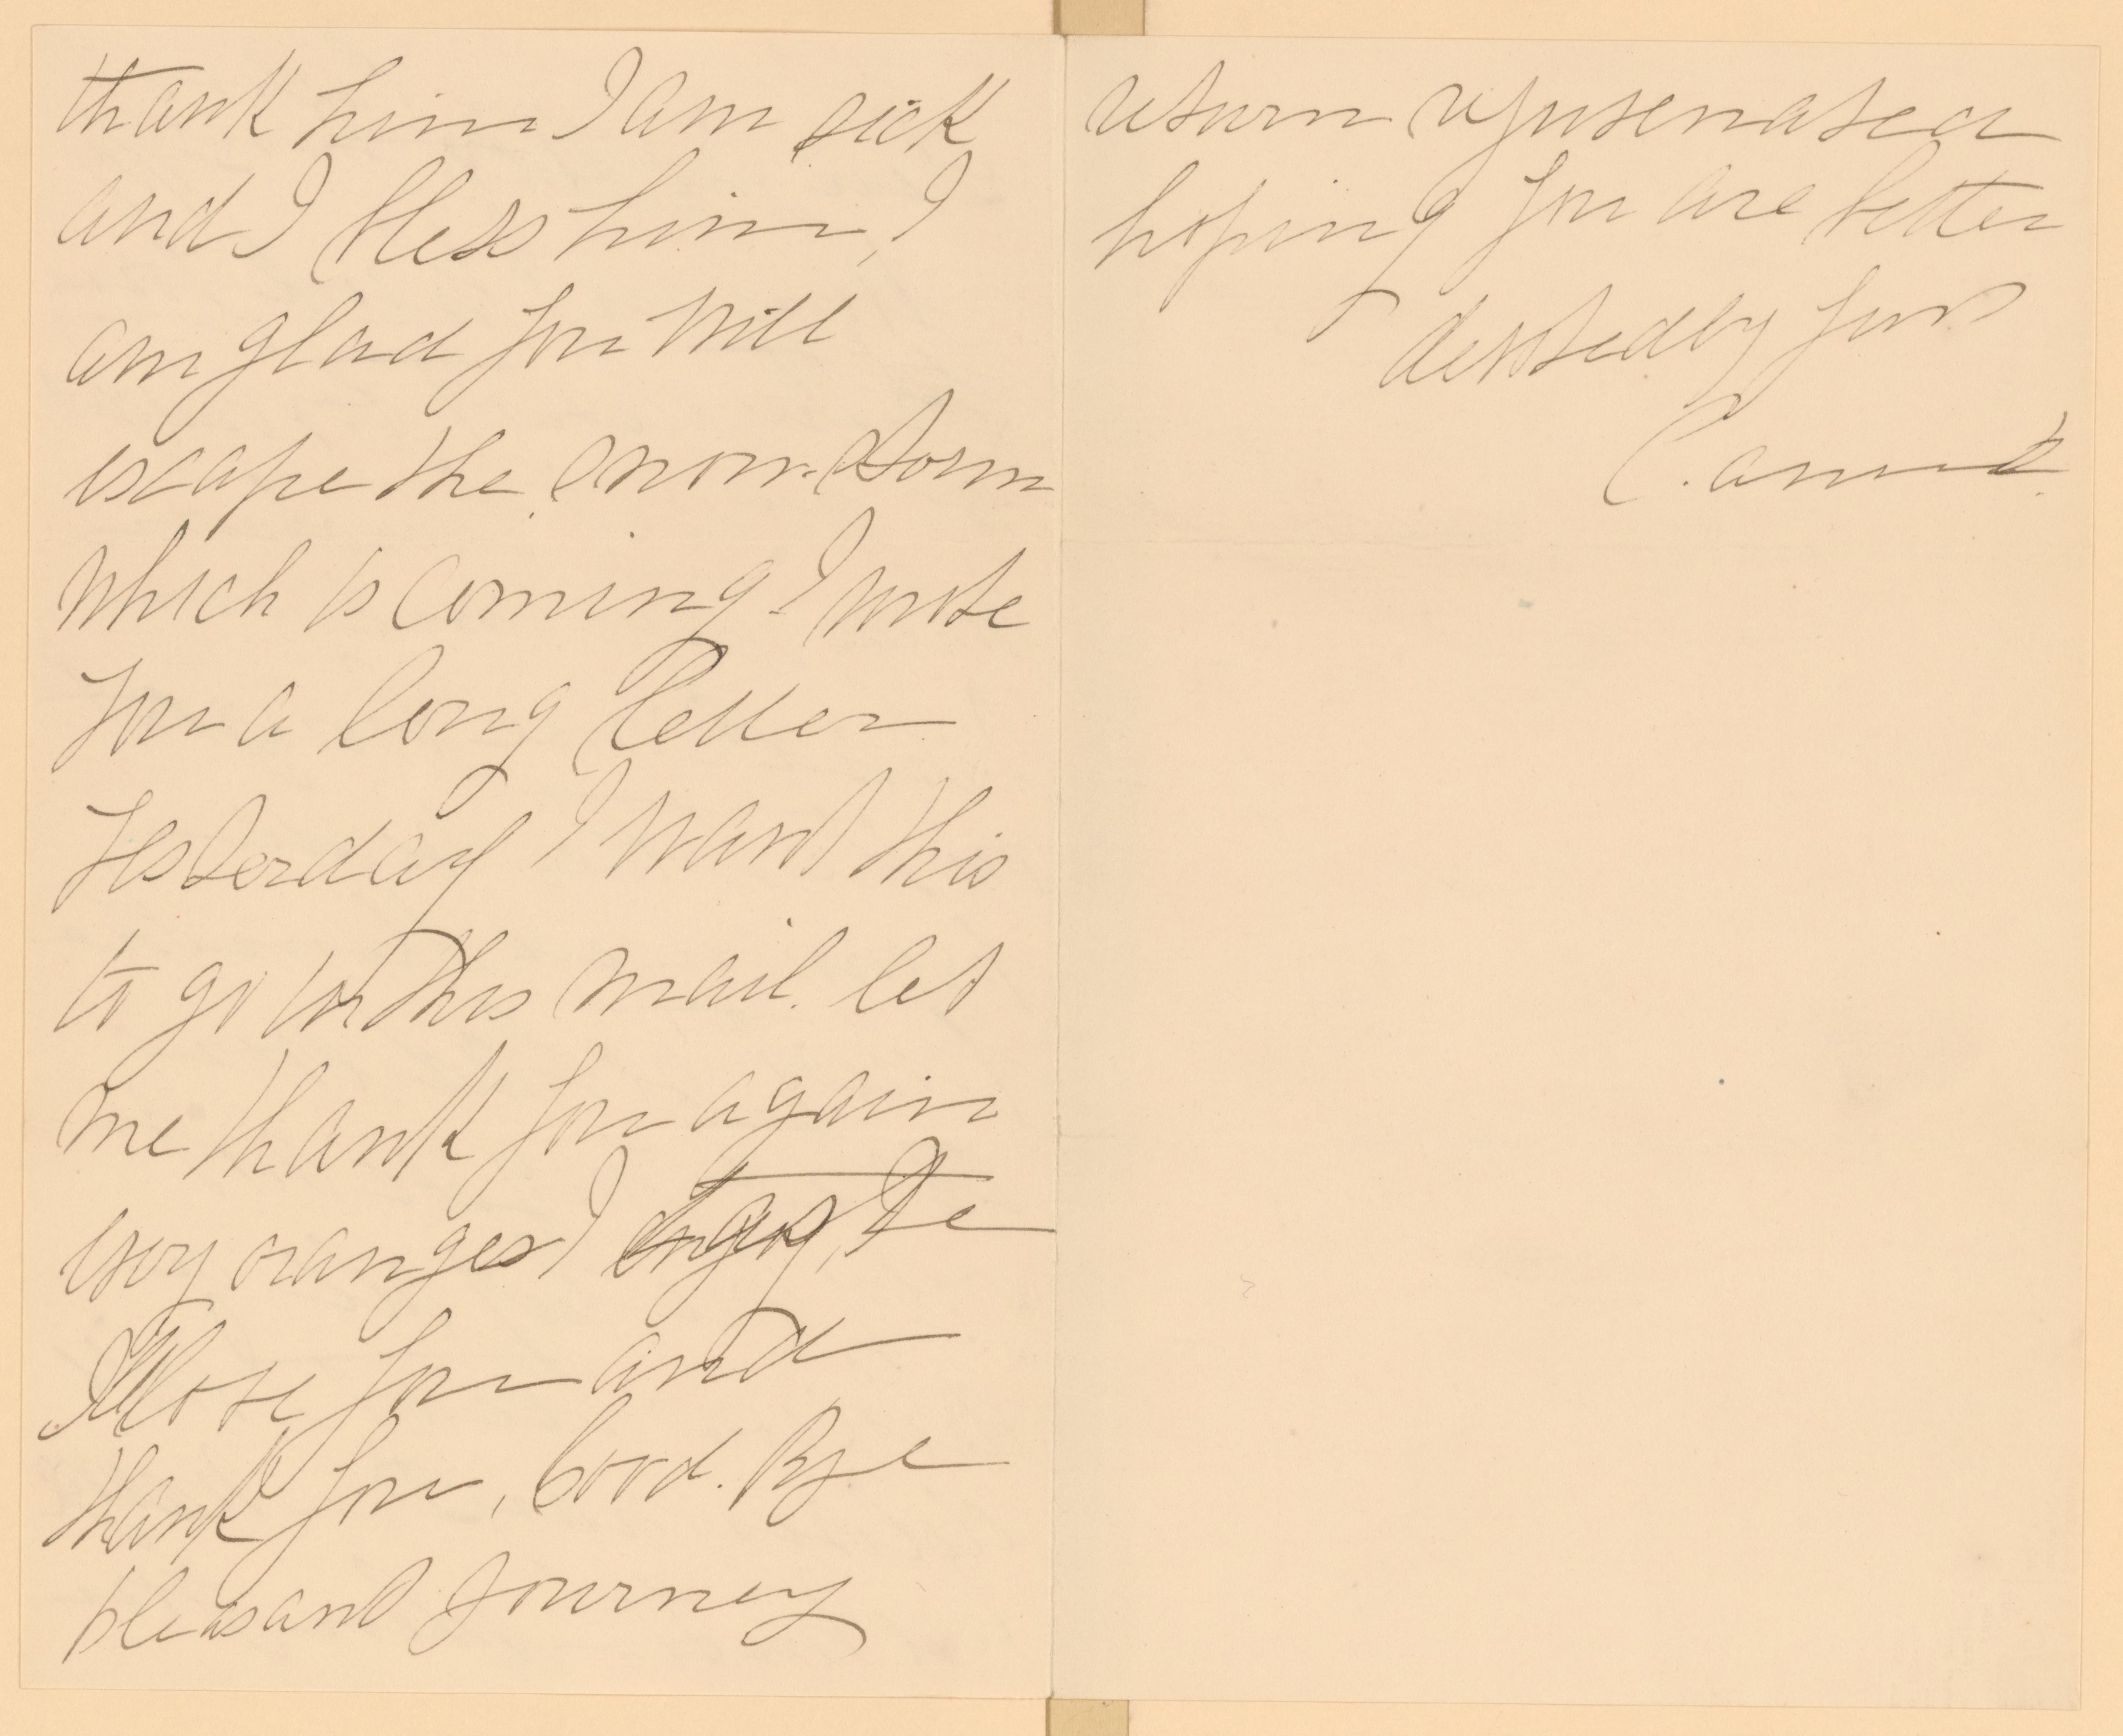 thank him I am sick
and I bless him, I
am glad you will
escape the snow-storm
which is coming. I wrote
you a long letter
yesterday I want this
to go in this mail. let
me thank you again
very oranges I enjoy, the
I love you and
thank you, Good. Bye
pleasant journey
return rejuvenated
hoping you are better
devotedly yours